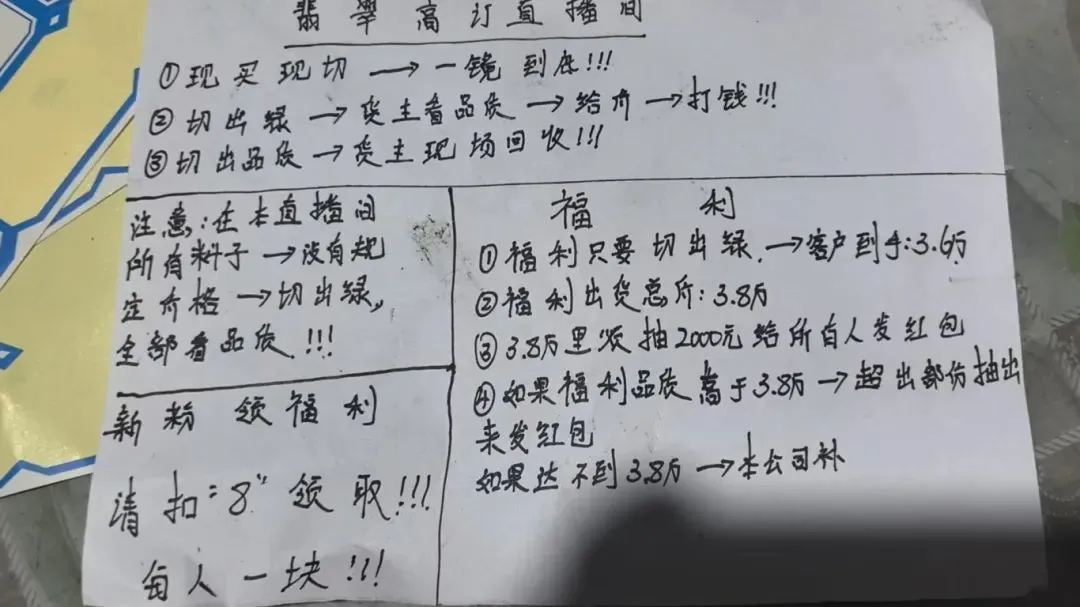 翡翠高订直播间
①现买现切→一镜到底!!!
②切出绿→货主看品质→给价→打钱!!!
③切出品质→货主现场回收!!!
注意:在本直播间
所有料子→没有规
定价格→切出绿,
全部看品质!!!
新粉领福利
请扣"8"领取!!!
每人一块!!!
福利
①福利只要切出绿→客户到手:3.6万
②福利出货总价:3.8万
③3.8万里须抽2000元给所有人发红包
④如果福利品质高于3.8万→超出部份抽出
来发红包
如果达不到3.8万→本公司补